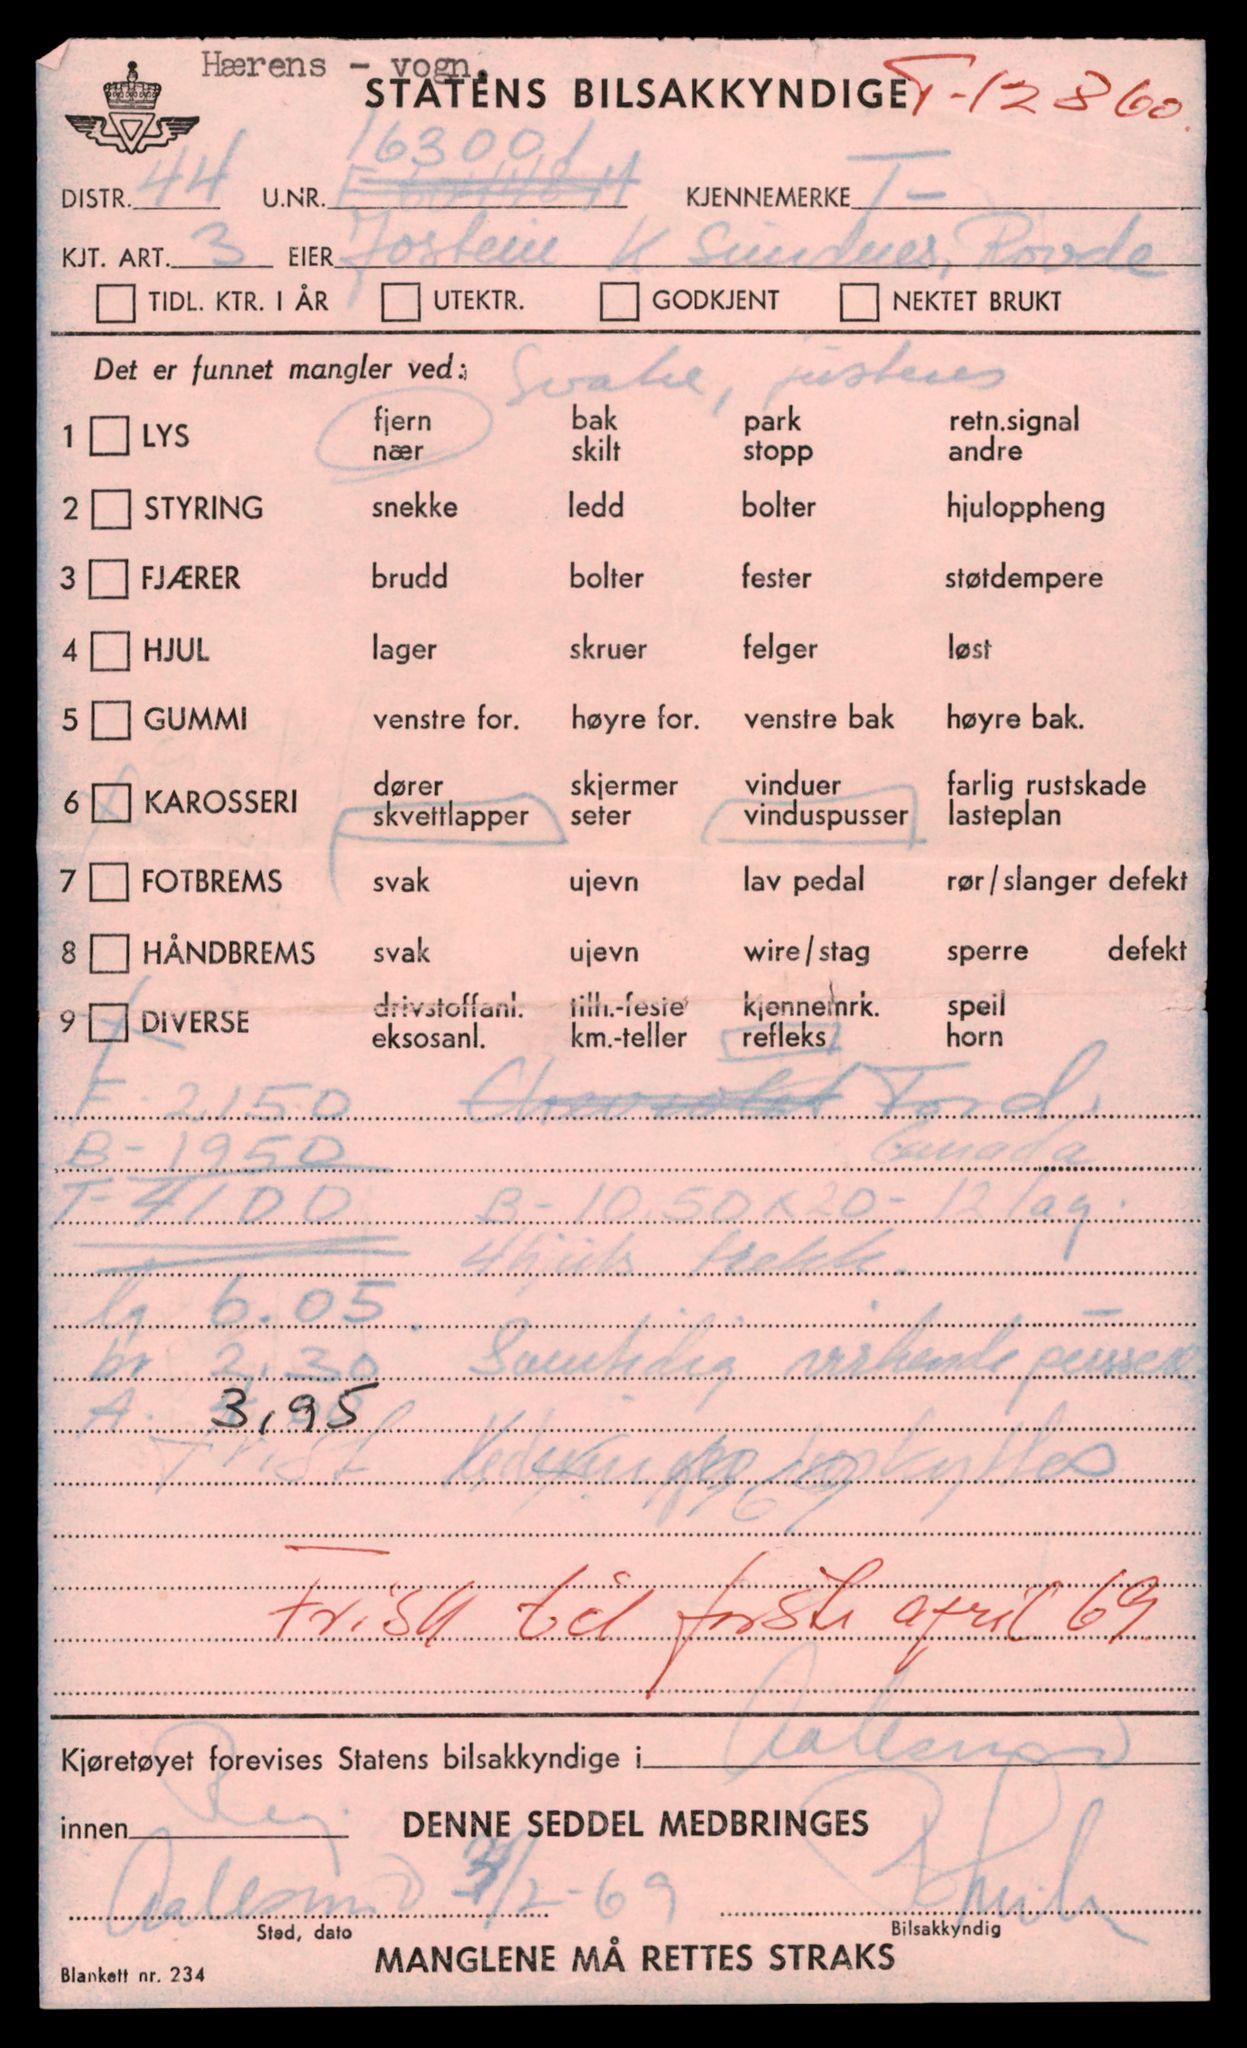 Hærens - vogn.
STATENS BILSAKKYNDIGE T-12860.
163001
DISTR. 44 U.NR. KJENNEMERKE T-
KJT. ART. 3 EIER Jostein K Sundnes, Rovde
TIDL. KTR. I ÅR UTEKTR. GODKJENT NEKTET BRUKT
Det er funnet mangler ved: Svake, justeres
1 LYS fjern bak park retn.signal
nær skilt stopp andre
2 STYRING snekke ledd bolter hjuloppheng
3 FJÆRER brudd bolter fester støtdempere
4 HJUL lager skruer felger løst
5 GUMMI venstre for. høyre for. venstre bak høyre bak.
6 KAROSSERI dører skjermer vinduer farlig rustskade
skvettlapper seter vinduspusser lasteplan
7 FOTBREMS svak ujevn lav pedal rør/slanger defekt
8 HÅNDBREMS svak ujevn wire/stag sperre defekt
9 DIVERSE drivstoffanl. tilh.-feste kjennemrk. speil
eksosanl. km.-teller refleks horn
F- 2150 Chevrolet Ford.
B- 1950 Canada
T- 4100 B- 10.50x20- 12 lag.
4hjuls trekk.
lg 6.05.
br 2,30 Samtidig virkende pusser
A. 3,95
Frist
Frist til første april 69
Kjøretøyet forevises Statens bilsakkyndige i Aalesund
innen Reg. DENNE SEDDEL MEDBRINGES
Aalesund 3/2-69
Sted, dato Bilsakkyndig
MANGLENE MÅ RETTES STRAKS
Blankett nr. 234